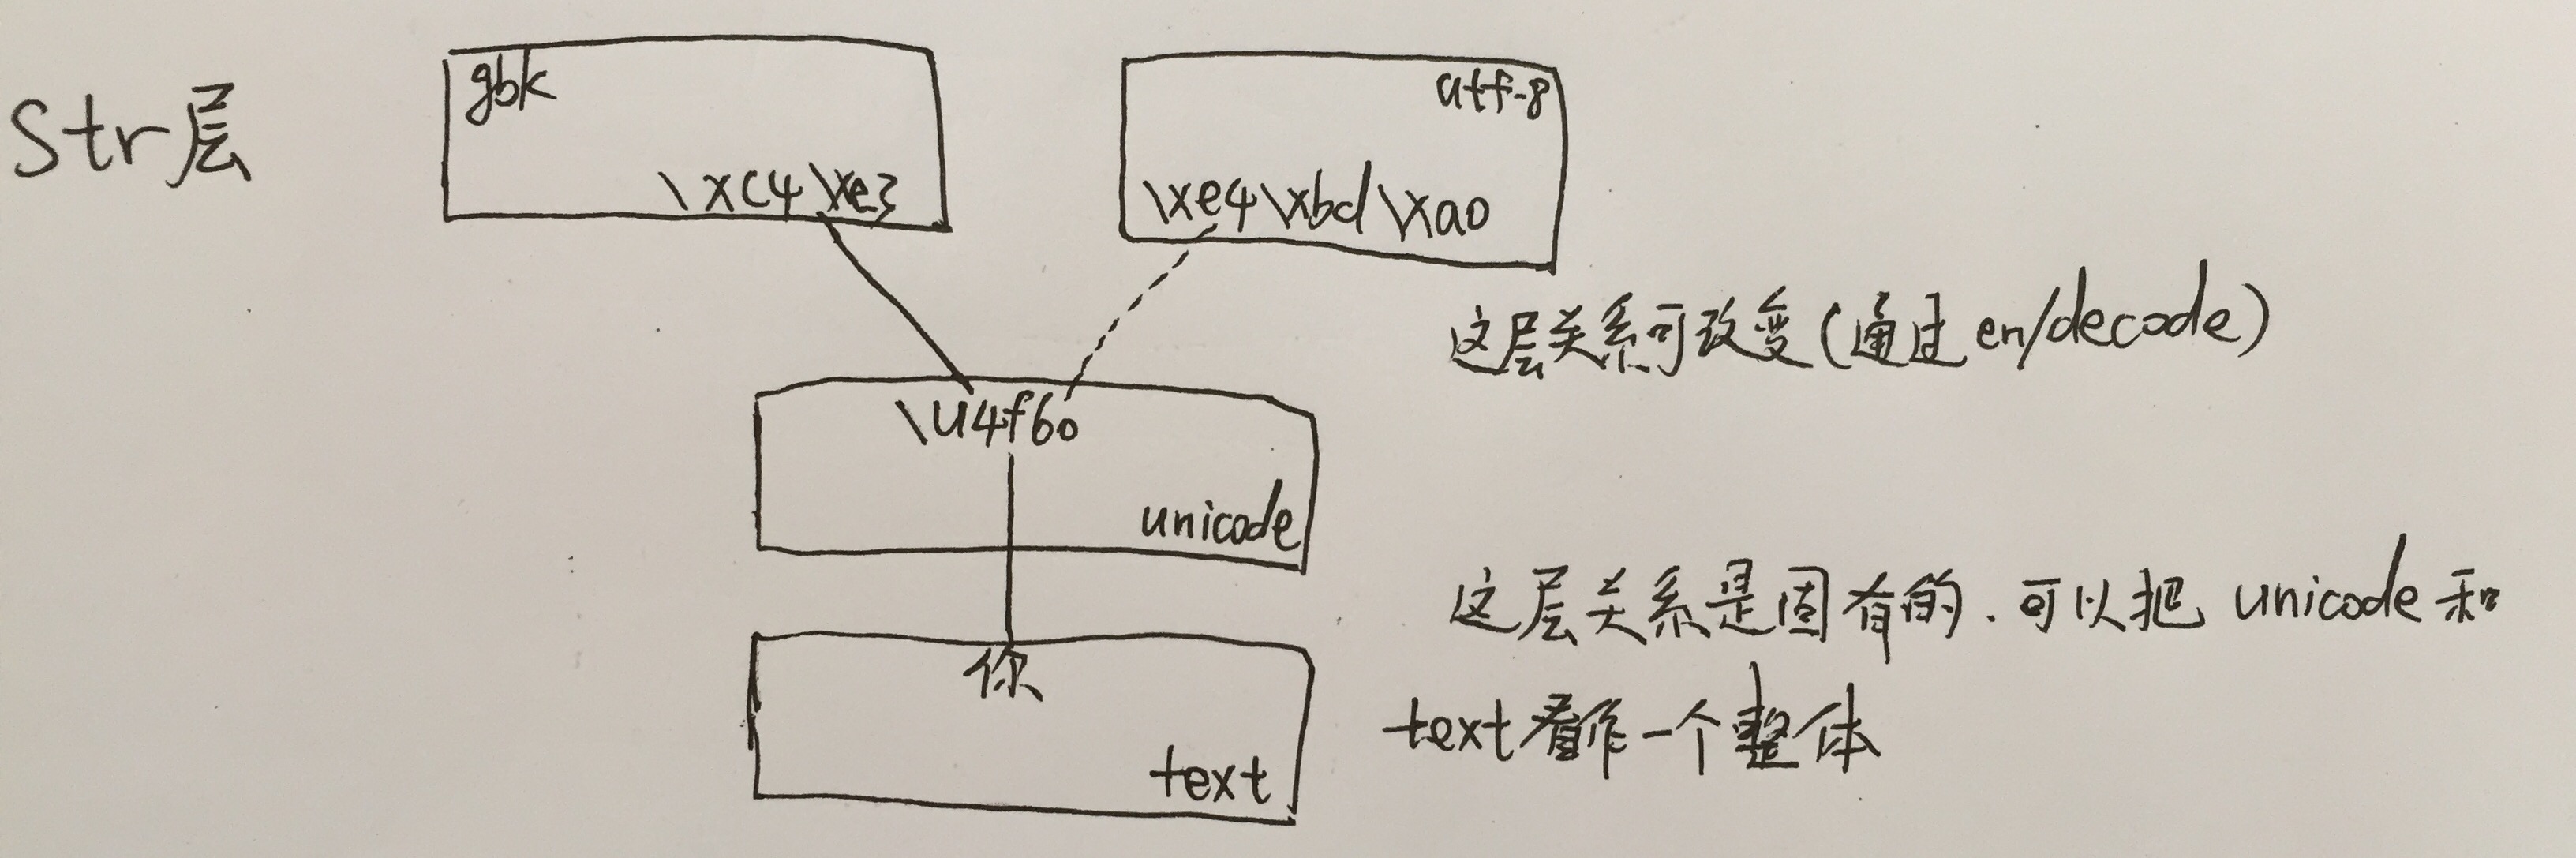 str层
gbk
\xc4\xe3
utf-8
\xe4\xbd\xa0
这层关系可改变(通过en/decode)
\u4f60
unicode
这层关系是固有的.可以把 unicode 和
text看作一个整体
你
text